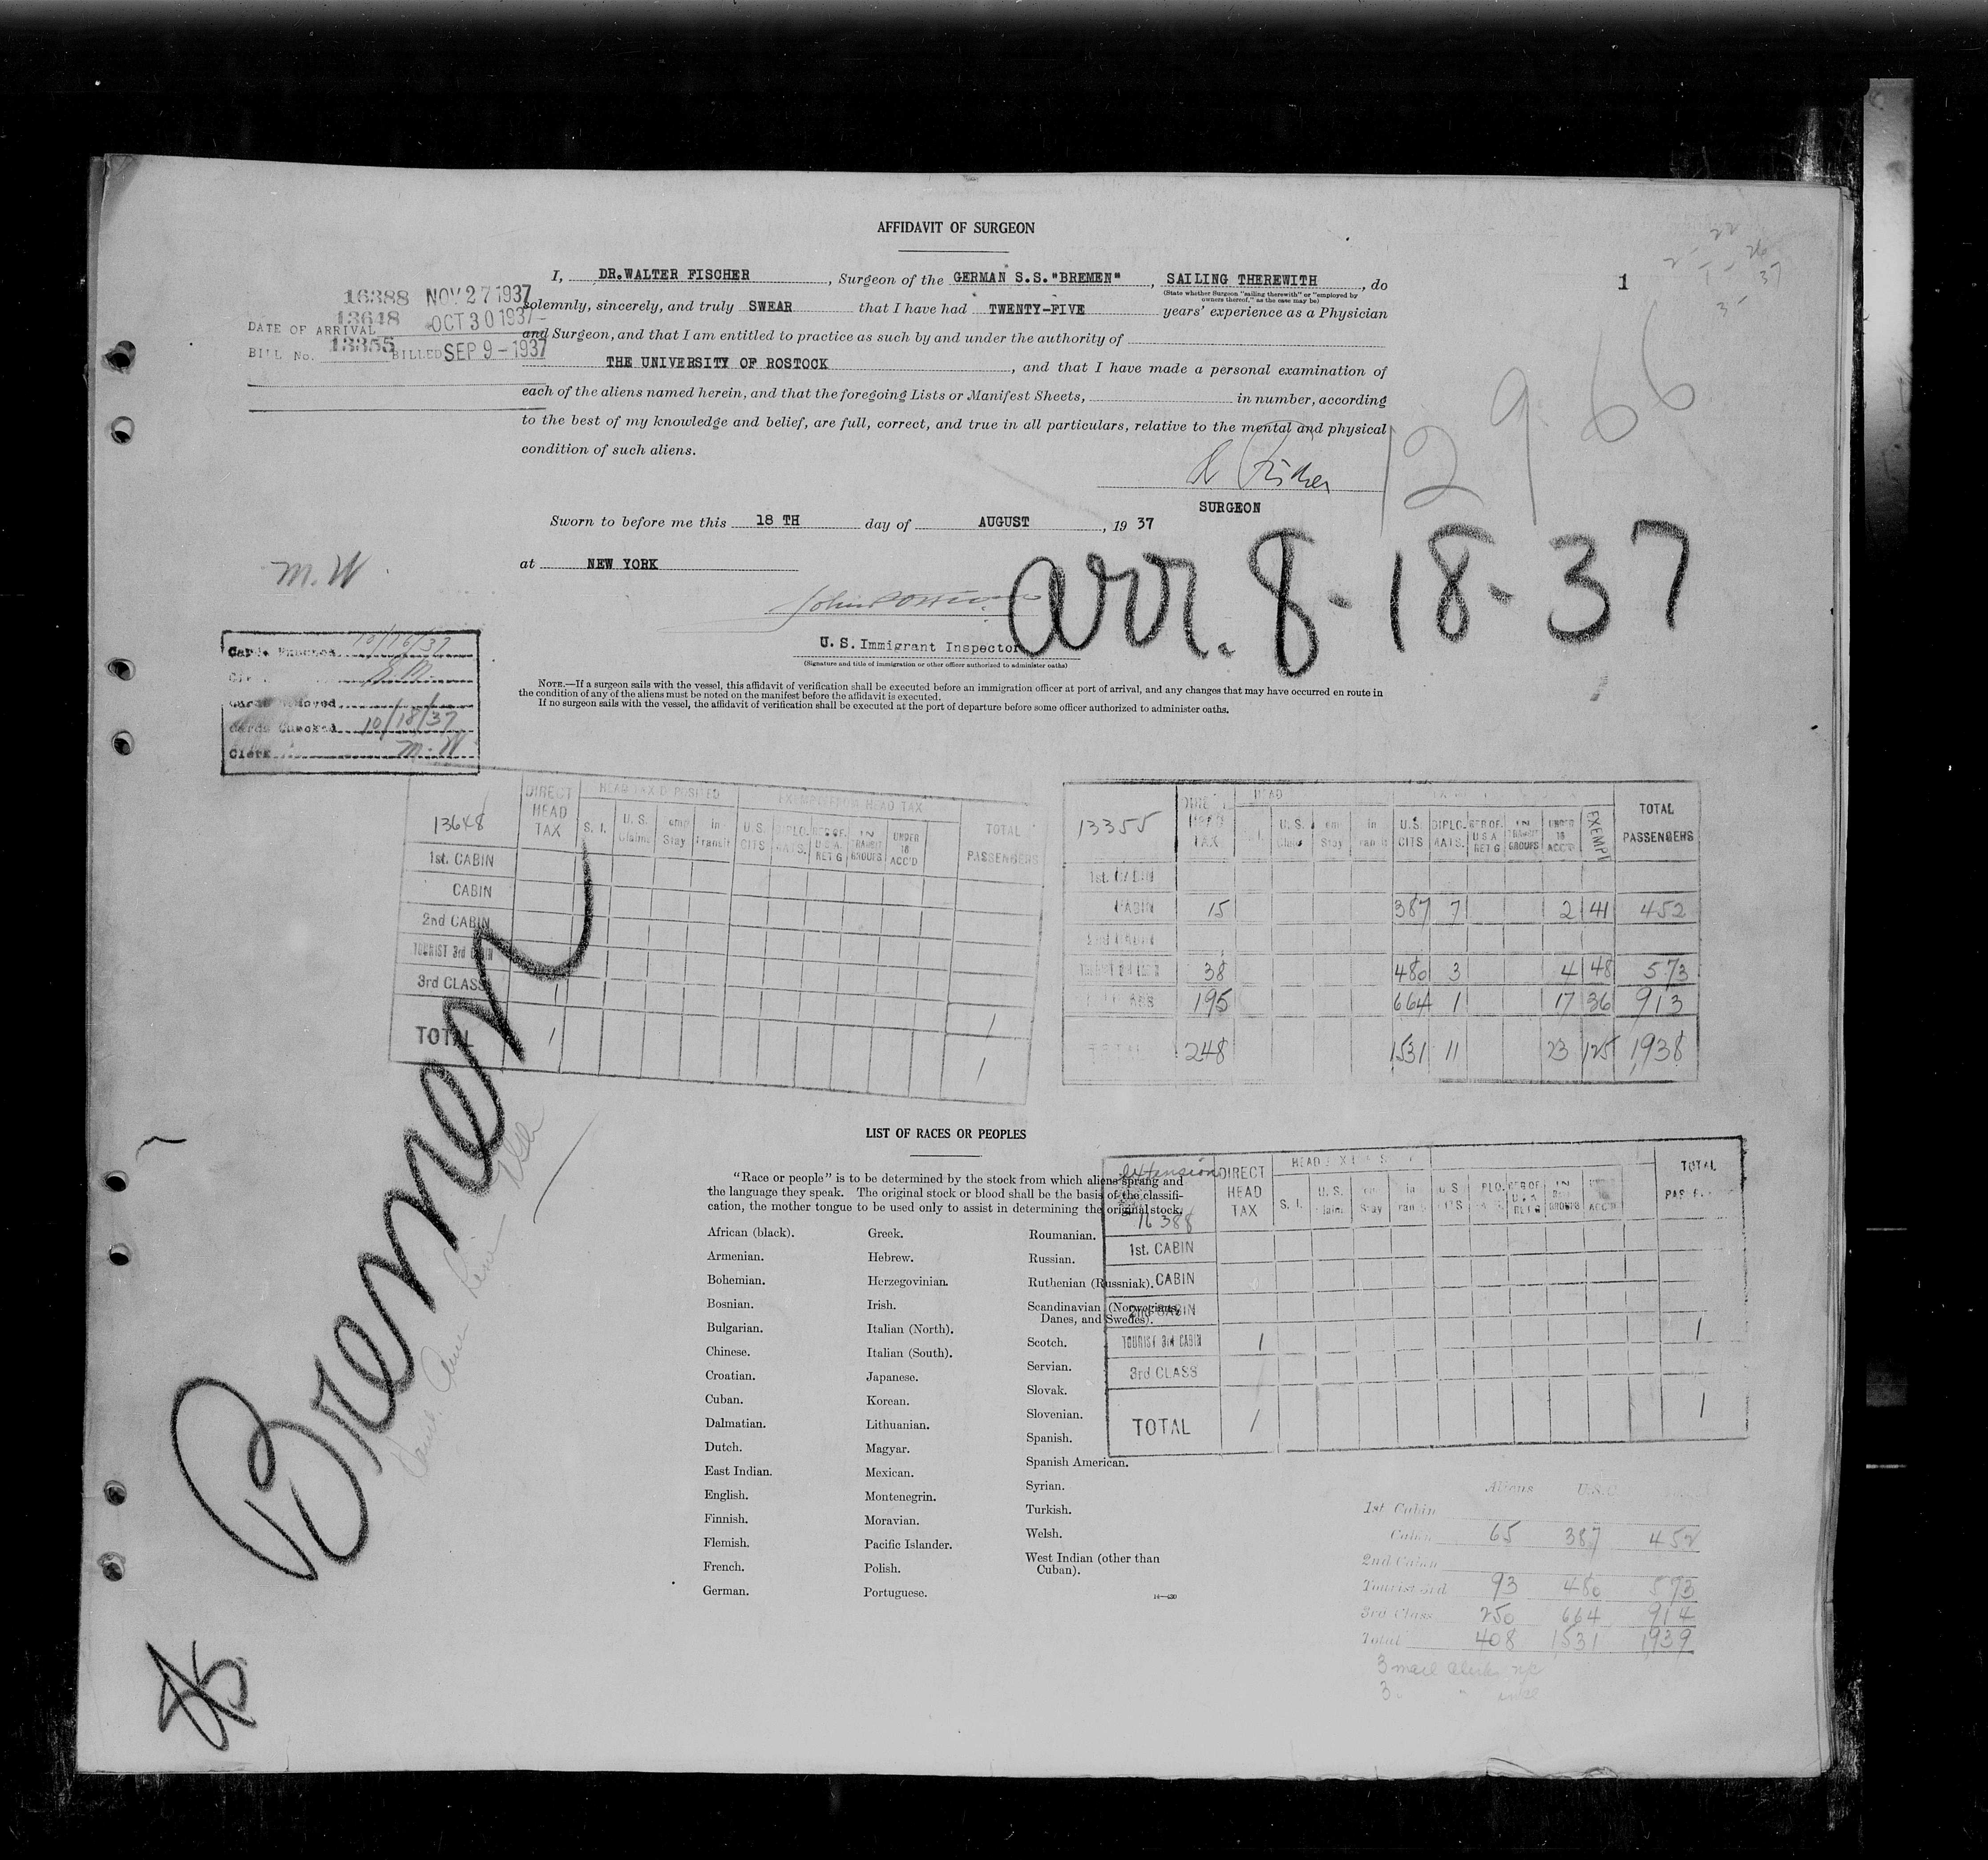 AFFIDAVIT OF SURGEON
1
I, DR.WALTER FISCHER, Surgeon of the GERMAN S.S."BREMEN", SAILING THEREWITH, do
(State whether Surgeon "sailing therewith" or "employed by owners thereof," as the case may be)
solemnly, sincerely, and truly SWEAR that I have had TWENTY-FIVE years' experience as a Physician
and Surgeon, and that I am entitled to practice as such by and under the authority of
THE UNIVERSITY OF ROSTOCK, and that I have made a personal examination of
each of the aliens named herein, and that the foregoing Lists or Manifest Sheets, in number, according
to the best of my knowledge and belief, are full, correct, and true in all particulars, relative to the mental and physical
condition of such aliens.
16388 NOV 27 1937
13648 OCT 30 1937
DATE OF ARRIVAL
13355 SEP 9-1937
BILL No. BILLED
Fischer
SURGEON
12966
Sworn to before me this 18 TH day of AUGUST, 19 37
at NEW YORK
arr. 8-18-37
M.W.
U.S. Immigrant Inspector
(Signature and title of immigration or other officer authorized to administer oaths)
NOTE.—If a surgeon sails with the vessel, this affidavit of verification shall be executed before an immigration officer at port of arrival, and any changes that may have occurred en route in
the condition of any of the aliens must be noted on the manifest before the affidavit is executed.
If no surgeon sails with the vessel, the affidavit of verification shall be executed at the port of departure before some officer authorized to administer oaths.
10/16/37
Cards Checked 10/18/37
Clerk M.W
13648 DIRECT HEAD TAX S. I. U.S. Claims Stay in Transit U.S. CITS DIPLO. MATS. U.S.A. RET'G IN TRANSIT GROUPS UNDER 16 ACC'D TOTAL PASSENGERS
EXEMPT FROM HEAD TAX
1st. CABIN
CABIN
2nd CABIN
TOURIST 3rd CABIN
3rd CLASS 1 1
TOTAL 1 1
13355 TAX HEAD U.S. U.S. CITS DIPLO. MATS. U.S.A. RET G GROUPS UNDER 16 ACC'D EXEMPT TOTAL PASSENGERS
1st. CABIN
CABIN 15 387 7 2 41 452
2nd CABIN
38 480 3 4 48 573
195 664 1 17 36 913
TOTAL 248 1531 11 23 125 1938
Bremen
LIST OF RACES OR PEOPLES
"Race or people" is to be determined by the stock from which aliens sprang and
the language they speak. The original stock or blood shall be the basis of the classifi-
cation, the mother tongue to be used only to assist in determining the original stock.
African (black).
Armenian.
Bohemian.
Bosnian.
Bulgarian.
Chinese.
Croatian.
Cuban.
Dalmatian.
Dutch.
East Indian.
English.
Finnish.
Flemish.
French.
German.
Greek.
Hebrew.
Herzegovinian.
Irish.
Italian (North).
Italian (South).
Japanese.
Korean.
Lithuanian.
Magyar.
Mexican.
Montenegrin.
Moravian.
Pacific Islander.
Polish.
Portuguese.
Roumanian.
Russian.
Ruthenian (Russniak).
Scandinavian (Norwegians,
Danes, and Swedes).
Scotch.
Servian.
Slovak.
Slovenian.
Spanish.
Spanish American.
Syrian.
Turkish.
Welsh.
West Indian (other than
Cuban).
Extension
16388 DIRECT HEAD TAX S. I. U.S. Stay GROUPS ACC'D TOTAL
1st. CABIN
CABIN
2nd CABIN
TOURIST 3rd CABIN 1 1
3rd CLASS
TOTAL 1 1
Aliens U.S.C.
1st Cabin
Cabin 65 387 452
2nd Cabin
Tourist 3rd 93 480 573
3rd Class 250 664 914
Total 408 1531 1939
3 mail clerks
3